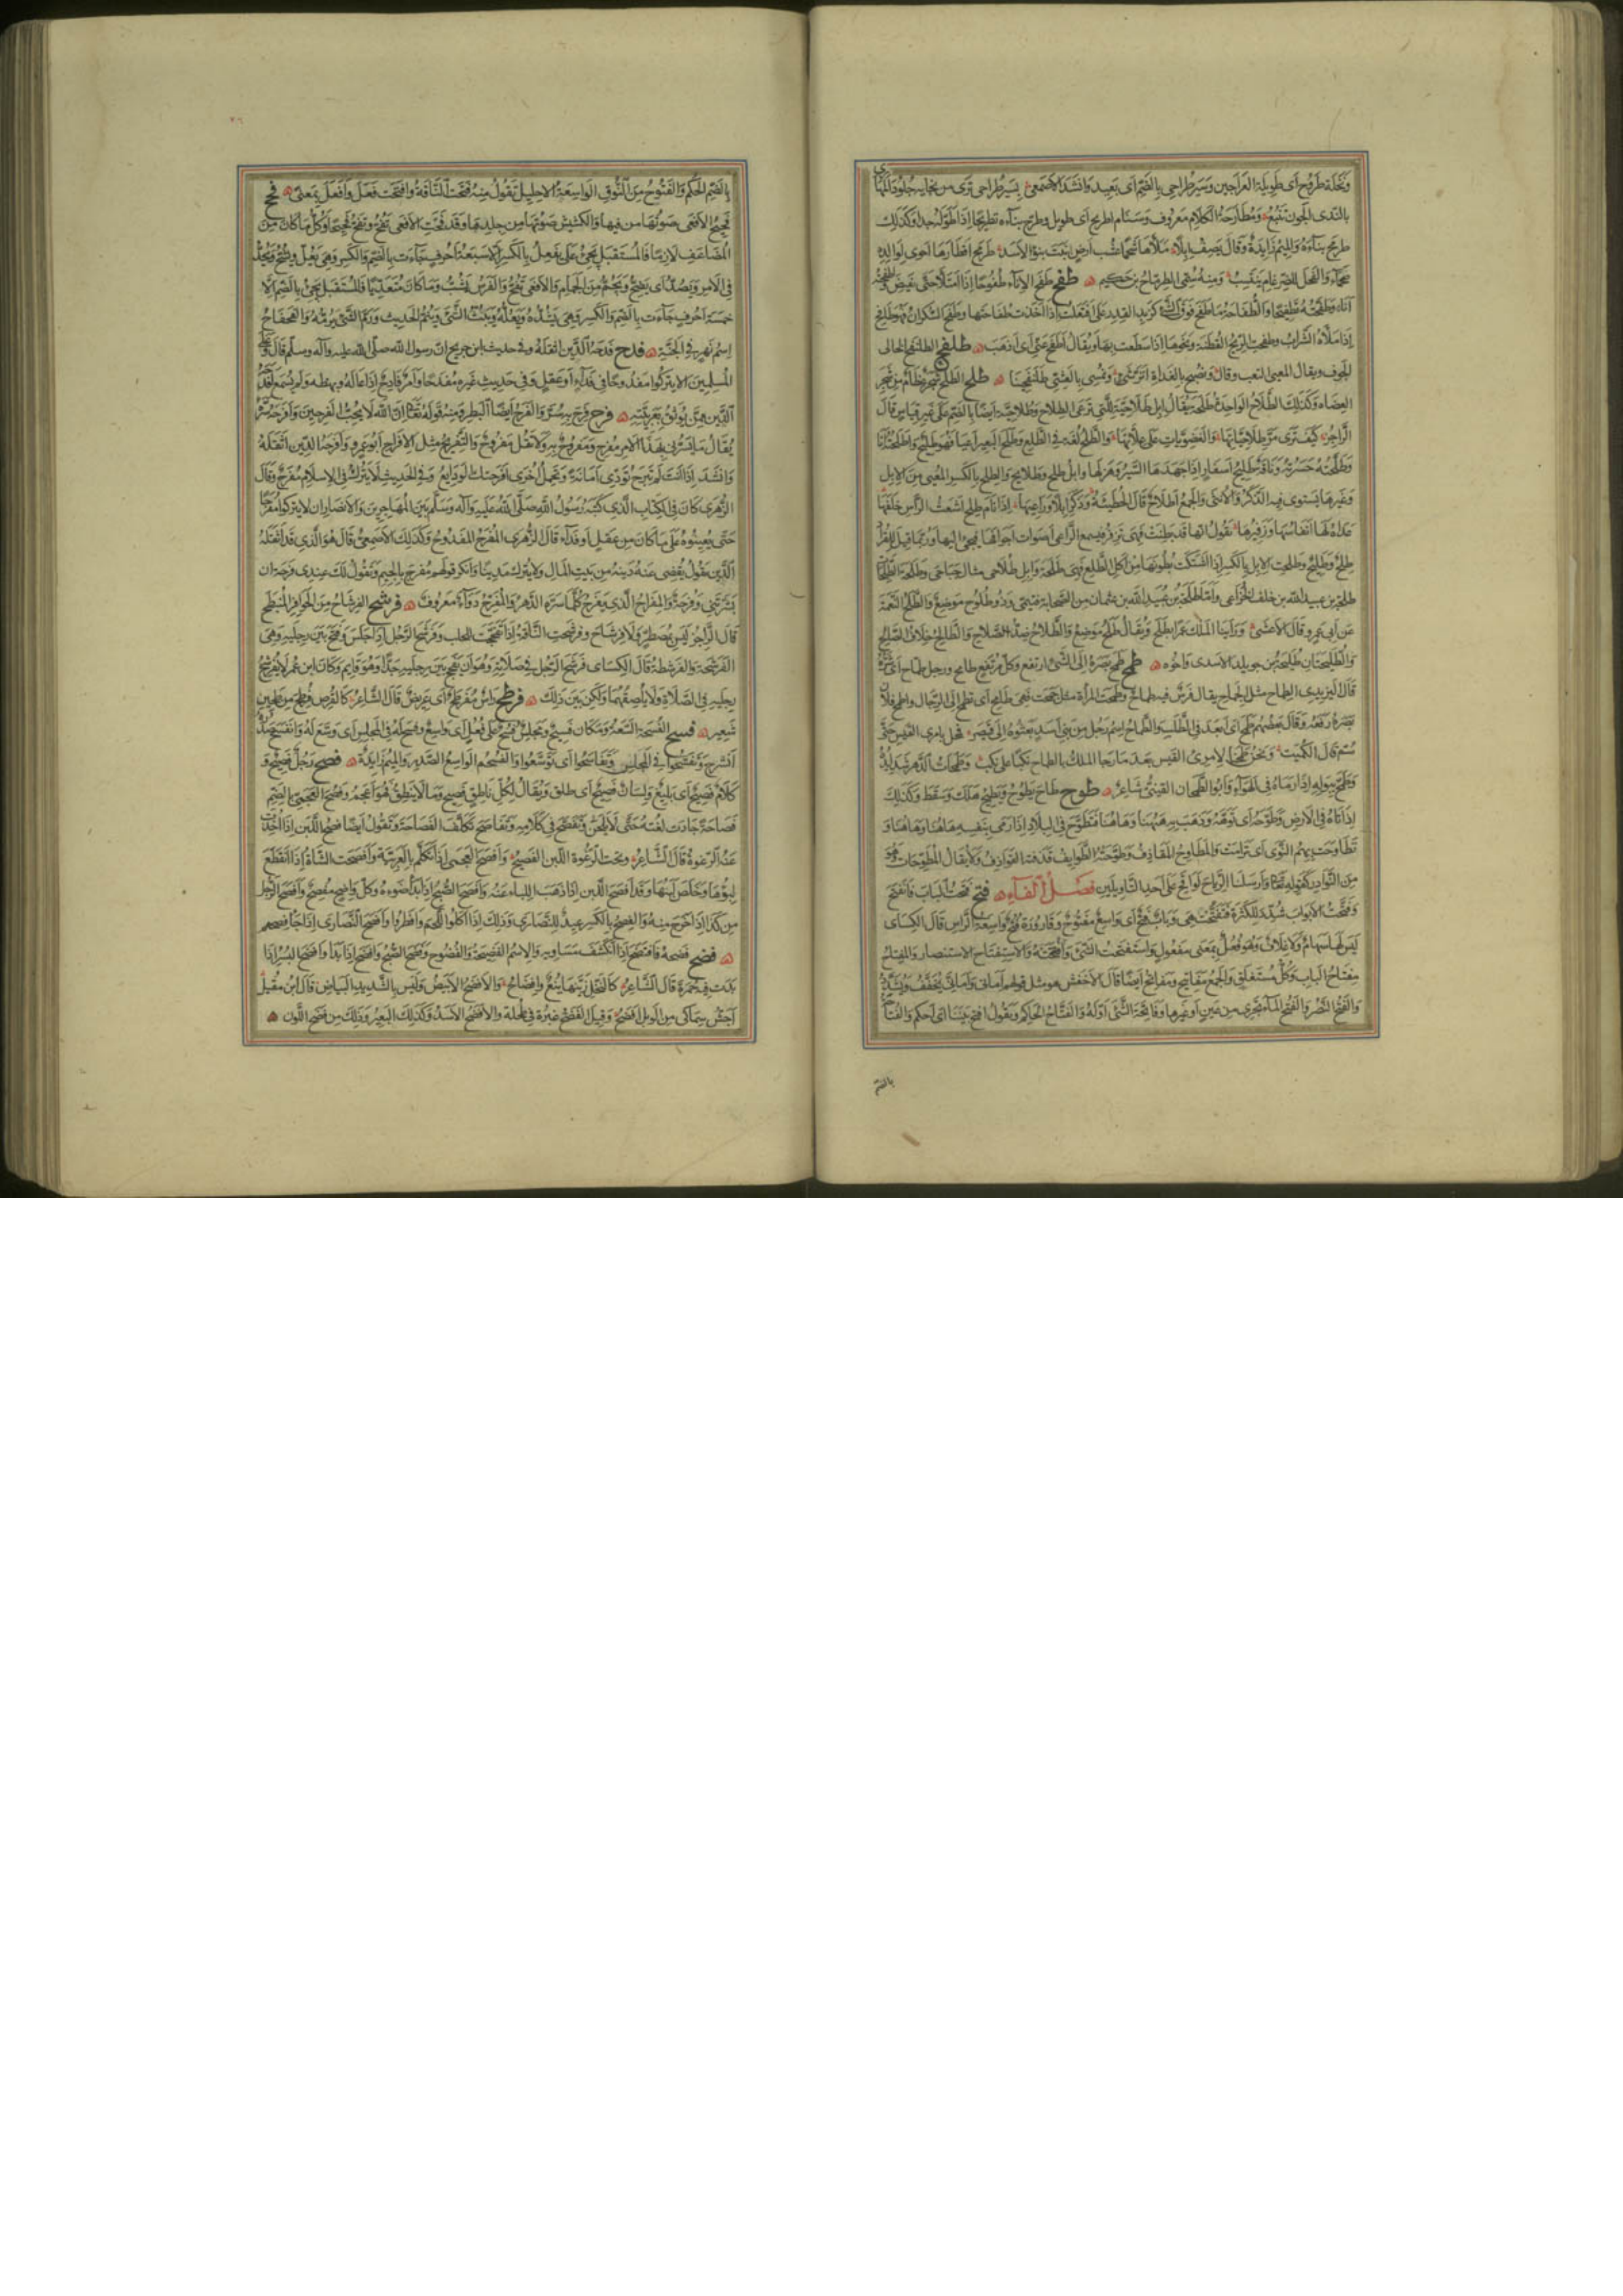 ونخلة طروح أي طويلة العراجين وسير طراحي بالضم أي بعيد وانشد الاصمعي بسير طراحي ترى من نجائه جلود المهارى
بالندى الجون تنبع ومطارحة الكلام معروف وسنام اطريح أي طويل وطرح بناءه تطريحا اذا طوله جدا وكذلك
طرمح بناءه والميم زايدة وقال يصف ابلا ملأها شحما عشب أرض نبت بنوء الاسد طرمح اقطارها احوى لوالدة
صحماء والفحل للضرغام ينتسب ومنه سمي الطرماح بن حكيم ۞ طفح طفح الاناء طفوحا اذا امتلأ حتى يفيض
اناء وطفحته تطفيحا والطفاحة ما طفح فوق الشيء كزبد القدر على افتعلت اذا اخذت طفاحتها وطفح السكران فهو طافح
اذا ملأه الشراب وطفحت الريح القطنة ونحوها اذا سطعت بها ويقال اطفح عني أي اذهب ۞ طلفح الطلنفح الخالي
الجوف ويقال المعيي التعب وقال ونصبح بالغداة اتر شيء ونمسي بالعشي طلنفحينا ۞ طلح الطلح شجر عظام من شجر
العضاه وكذلك الطلاح الواحدة طلحة يقال ابل طلاحية للتي ترعى الطلاح وطلاحية ايضا بالضم على غير قياس قال
الراجز كيف ترى مر طلاحياتها والغضويات على علاتها والطلح لغة في الطلع وطلح البعير اعيا فهو طليح واطلحته انا
وطلحته حسرته وناقة طليح اسفار اذا جهدها السير وهزلها وابل طلح وطلايح والطلح بالكسر المعيي من الابل
وغيرها يستوي فيه الذكر والانثى والجمع اطلاح قال الحطيئة وذكر ابلا وراعيها اذا نام طلح اشعث الرأس خلفها
هداه لها انفاسها وزفيرها تقول انها قد بطنت فهي تزفر فيسمع الراعي اصوات اجوافها فيجيء اليها وربما قيل للقراد
طلح وطليح وطلحت الابل بالكسر اذا اشتكت بطونها من اكل الطلح فهي طلحة وابل طلاحى مثال حباجى وطلحة الطلحات
طلحة بن عبيد الله بن خلف الخزاعي واما طلحة بن عبيد الله بن عثمان من الصحابة فتيمي وذو طلوح موضع والطلح النعمة
عن ابي عمرو قال الاعشى ورأينا الملك عمرا بطلح ويقال طلح موضع والطلاح ضد الصلاح والطالح خلاف الصالح
والطليحتان طليحة بن خويلد الاسدي واخوه ۞ طمح طمح بصره الى الشيء ارتفع وكل مرتفع طامح ورجل طماح أي شره
قال اليزيدي الطماح مثل الجماح يقال فرس فيه طماح وطمحت المرأة مثل جمحت فهي طامح أي تطمح الى الرجال واطمح فلان
بصره رفعه وقال بعضهم طمح أي ابعد في الطلب والطماح اسم رجل من بني اسد بعثوه الى قيصر فمحل بامرئ القيس حتى
سم قال الكميت ونحن طمحنا لامرئ القيس بعد ما رجا الملك بالطماح نكبا على نكب وطمحات الدهر شدايده
وطمح ببوله اذا رماه في الهواء وابو الطمحان القيني شاعر ۞ طوح طاح يطوح ويطيح هلك وسقط وكذلك
اذا تاه في الارض وطوحه أي توهه وذهب به ههنا وهاهنا فتطوح في البلاد اذا رمى بنفسه هاهنا وهاهنا و
تطاوحت بهم النوى أي ترامت والمطاوح المقاذف وطوحته الطوايح قذفته القواذف ولا يقال المطوحات وهو
من النوادر كقوله تعالى وارسلنا الرياح لواقح على احد التأويلين فصل الفاء ۞ فتح فتحت الباب فانفتح
وفتحت الابواب شدد للكثرة فتفتحت هي وباب فتح أي واسع مفتوح وقارورة فتح واسعة الرأس قال الكساي
ليس لها صمام ولا غلاف وهو فعل بمعنى مفعول واستفتحت الشيء وافتتحته والاستفتاح الاستنصار والمفتاح
مفتاح الباب وكل مستغلق والجمع مفاتيح ومفاتح ايضا قال الاخفش هو مثل قولهم اماني واماني يخفف ويشدد
والفتح النصر والفتح الماء يجري من عين او غيرها وفاتحة الشيء اوله والفتاح الحاكم وتقول افتح بيننا أي احكم والفتاحة
بالضم
بالضم الحكم والفتوح من النوق الواسعة الاحليل تقول منه فتحت الناقة وافتحت فعل وافعل بمعنى ۞ فح
فحيح الافعى صوتها من فيها والكشيش صوتها من جلدها وقد فحت الافعى تفح وتفح فحيحا وكل ما كان من
المضاعف لازما فالمستقبل يجيء على يفعل بالكسر الا سبعة احرف جاءت بالضم والكسر وهي يعل ويشح ويجد
في الامر ويصد أي يضج ويجم من الجمام والافعى تفح والفرس يشب وما كان متعديا فالمستقبل يجيء بالضم الا
خمسة احرف جاءت بالضم والكسر وهي يشده ويعله ويبت الشيء وينم الحديث ورم الشيء يرمه والفحفاح
اسم نهر في الجنة ۞ فدح فدحه الدين اثقله وفي حديث ابن جريج ان رسول الله صلى الله عليه وآله وسلم قال وعلى
المسلمين الا يتركوا مفدوحا في فداء او عقل وفي حديث غيره مفدحا وامر فادح اذا عاله وبهظه ولم يسمع افدحه
الدين ممن يوثق بعربيته ۞ فرح فرح به سر والفرح ايضا البطر ومنه قوله تعالى ان الله لا يحب الفرحين وافرحه سره
يقال ما يسرني بهذا الامر مفرح ومفروح به ولا تقل مفروح والتفريح مثل الافراح ابو عمرو وافرحه الدين اثقله
وانشد اذا انت لم تبرح تؤدي امانة وتحمل اخرى افرحتك الودايع وفي الحديث لا يترك في الاسلام مفرح وقال
الزهري كان في الكتاب الذي كتبه رسول الله صلى الله عليه وآله وسلم بين المهاجرين والانصار ان لا يتركوا مفرحا
حتى يعينوه على ما كان من عقل او فداء قال الزهري المفرح المفدوح وكذلك الاصمعي قال هو الذي قد اثقله
الدين يقول يقضى عنه دينه من بيت المال ولا يترك مدينا وانكر قولهم مفرج بالجيم وتقول لك عندي فرحة ان
بشرتني وفرحة والمفراح الذي يفرح كلما سره الدهر والمفرح دواء معروف ۞ فرشح الفرشاح من الحوافر المنبطح
قال الراجز ليس بمصطر ولا فرشاح وفرشحت الناقة اذا تفحجت للحلب وفرشح الرجل اذا جلس وفتح بين رجليه وهي
الفرشحة والفرشطة قال الكساي فرشح الرجل في صلاته وهو ان يفحج بين رجليه جدا وهو قايم وكان ابن عمر لا يفرشح
رجليه في الصلاة ولا يلصقهما ولكن بين ذلك ۞ فرطح رأس مفرطح أي عريض قال الشاعر كالقرص فرطح من طحين
شعير ۞ فسح الفسحة السعة ومكان فسيح ومجلس فسح على فعل أي واسع وفسح له في المجلس أي وسع له وانفسح صدره
انشرح وتفسحوا في المجلس وتفاسحوا أي توسعوا والفسحم الواسع الصدر والميم زايدة ۞ فصح رجل فصيح و
كلام فصيح أي بليغ ولسان فصيح أي طلق ويقال لكل ناطق فصيح وما لا ينطق فهو اعجم وفصح العجمي بالضم
فصاحة جادت لغته حتى لا يلحن وتفصح في كلامه وتفاصح تكلف الفصاحة وتقول ايضا فصح اللبن اذا اخذت
عنه الرغوة قال الشاعر وتحت الرغوة اللبن الفصيح وافصح العجمي اذا تكلم بالعربية وافصحت الشاة اذا انقطع
لبؤها وخلص لبنها وقد افصح اللبن اذا ذهب اللباء عنه وافصح الصبح اذا بدأ ضوءه وكل واضح مفصح وافصح الرجل
من كذا اذا خرج منه والفصح بالكسر عيد للنصارى وذلك اذا اكلوا اللحم وافطروا وافصح النصارى اذا جاء فصحهم
۞ فضح فضحه فافتضح اذا انكشف مساويه والاسم الفضيحة والفضوح وفضح الصبح وافضح اذا بدأ وافضح البسر اذا
بدت فيه حمرة قال الشاعر كالنخل زينها ينع وافضاح والافضح الابيض وليس بالشديد البياض قال ابن مقبل
اجش سماكي من الوبل افضح وقيل الفضح غبرة في طحلة والافضح الاسد وكذلك البعير وذلك من فضح اللون ۞